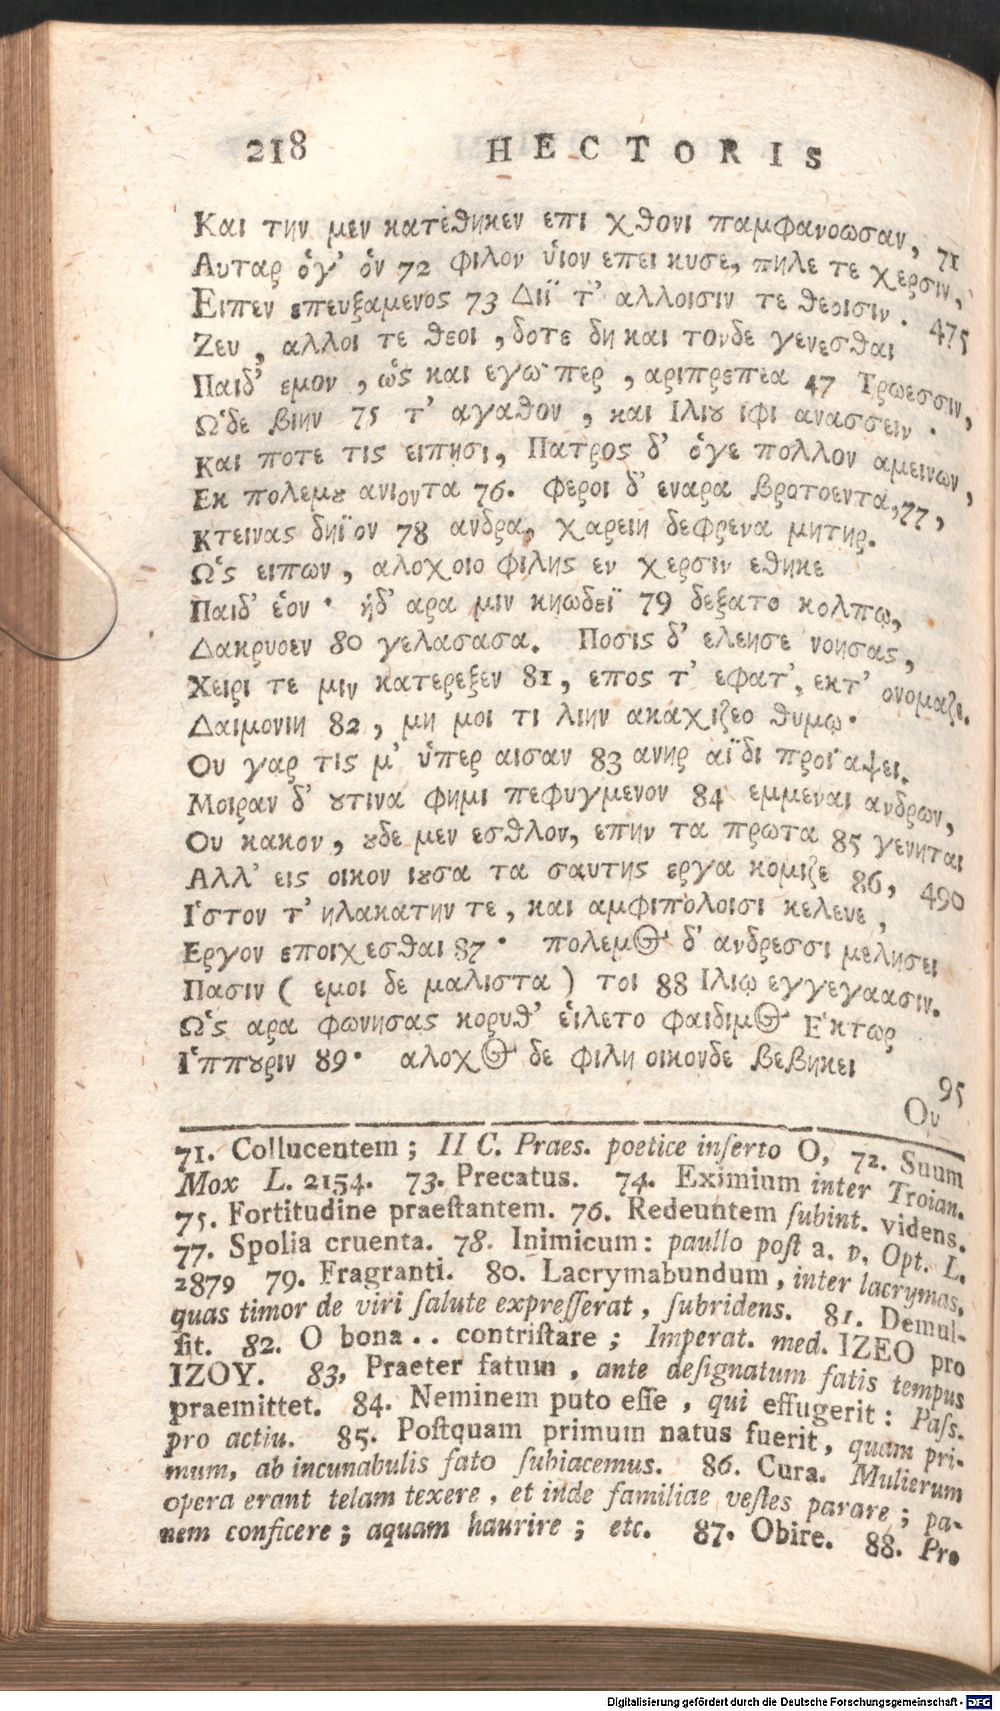 218 HECTORIS
Και την μεν κατέθηκεν επι χθονι παμφανοωσαν, 71
Αυταρ ὁγ' ὁν 72 φιλον ὑιον επει κυσε, πηλε τε χερσιν,
Ειπεν επευξαμενος 73 Διϊ τ' αλλοισιν τε θεοισιν. 475
Ζευ, αλλοι τε θεοι, δοτε δη και τονδε γενεσθαι
Παιδ' εμον, ὡς και εγω περ, αριπρεπεα 47 Τρωεσσιν,
Ὡδε βιην 75 τ' αγαθον, και Ιλιȣ ιφι ανασσειν.
Και ποτε τις ειπησι, Πατρος δ' ὁγε πολλον αμεινων,
Εκ πολεμȣ ανιοντα 76. φεροι δ' εναρα βροτοεντα, 77,
Κτεινας δηϊον 78 ανδρα, χαρειη δεφρενα μητηρ.
Ὡς ειπων, αλοχοιο φιλης εν χερσιν εθηκε
Παιδ' ἑον· ἡδ' αρα μιν κηωδεϊ 79 δεξατο κολπῳ,
Δακρυοεν 80 γελασασα. Ποσις δ' ελεησε νοησας,
Χειρι τε μιν κατερεξεν 81, επος τ' εφατ', εκτ' ονομαζε.
Δαιμονιη 82, μη μοι τι λιην ακαχιζεο θυμῳ·
Ου γαρ τις μ' ὑπερ αισαν 83 ανηρ αϊδι προϊαψει.
Μοιραν δ' ȣτινα φημι πεφυγμενον 84 εμμεναι ανδρων,
Ου κακον, ȣδε μεν εσθλον, επην τα πρωτα 85 γενηται
Αλλ' εις οικον ιȣσα τα σαυτης εργα κομιζε 86, 490
Ἱστον τ' ηλακατην τε, και αμφιπολοισι κελευε,
Εργον εποιχεσθαι 87· πολεμος δ' ανδρεσσι μελησει
Πασιν (εμοι δε μαλιστα) τοι 88 Ιλιῳ εγγεγαασιν.
Ὡς αρα φωνησας κορυθ' ἑιλετο φαιδιμος Ἑκτωρ
Ἱππȣριν 89· αλοχος δε φιλη οικονδε βεβηκει
95
Ου
71. Collucentem; II C. Praes. poetice inserto O, 72. Suum
Mox L. 2154. 73. Precatus. 74. Eximium inter Troian.
75. Fortitudine praestantem. 76. Redeuntem subint. videns.
77. Spolia cruenta. 78. Inimicum: paullo post a. v. Opt. L.
2879 79. Fragranti. 80. Lacrymabundum, inter lacrymas,
quas timor de viri salute expresserat, subridens. 81. Demul-
sit. 82. O bona.. contristare; Imperat. med. IZEO pro
IZOY. 83, Praeter fatum, ante designatum fatis tempus
praemittet. 84. Neminem puto esse, qui effugerit: Pass.
pro actiu. 85. Postquam primum natus fuerit, quam pri-
mum, ab incunabulis fato subiacemus. 86. Cura. Mulierum
opera erant telam texere, et inde familiae vestes parare; pa-
nem conficere; aquam haurire; etc. 87. Obire. 88. Pro
Digitalisierung gefördert durch die Deutsche Forschungsgemeinschaft - DFG